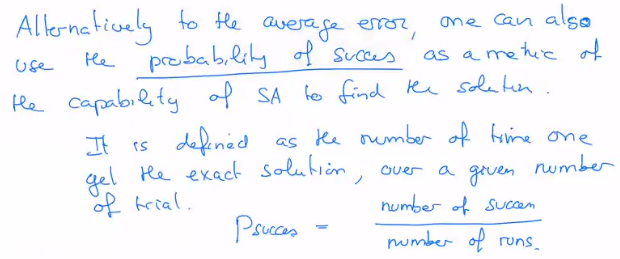 Alternatively to the average error, one can also
use the probability of succes as a metric of
the capability of SA to find the solution.
It is defined as the number of time one
get the exact solution, over a given number
of trial.
Psucces = number of succes
number of runs.